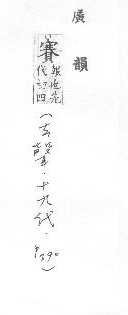 廣韻
賽 報也先代切四
(去聲．十九代．P390)